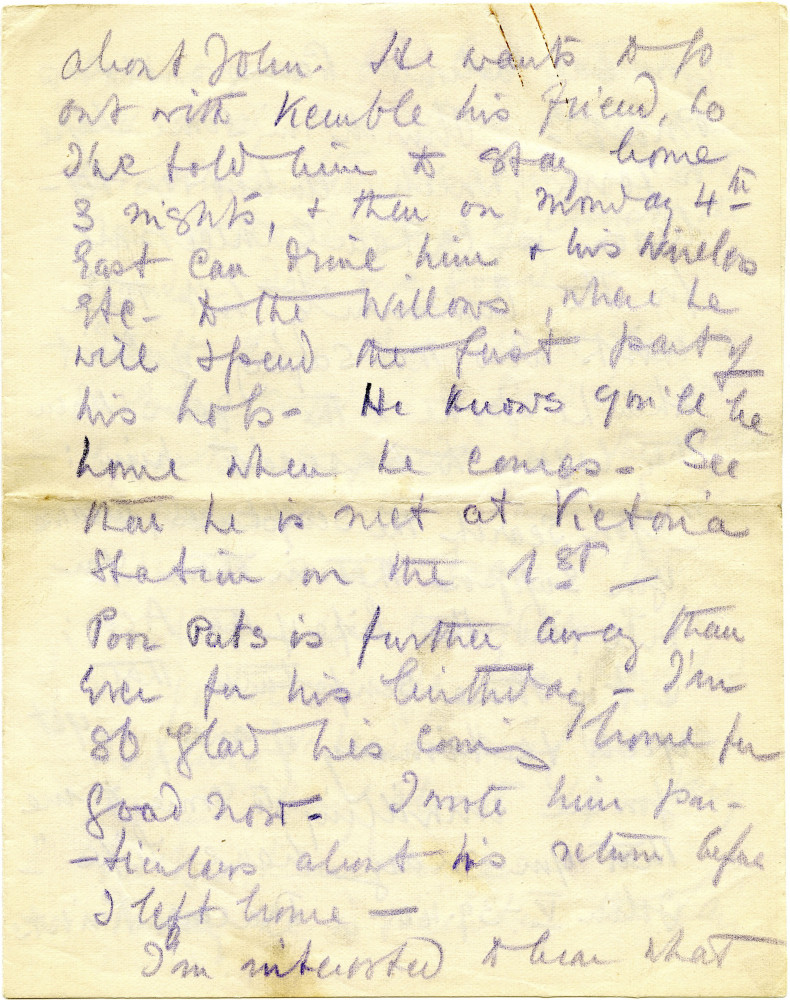 about John. He wants to go
out with Kemble his friend, so
I've told him to stay home
3 nights, + then on Monday 4th
East can drive him + his wireless
Etc - to the Willows, where he
will spend the first part of
his hols - He knows you'll be
home when he comes - See
that he is met at Victoria
Station on the 1st -
Poor Pats is further away than
Ever for his birthday - I'm
so glad he's coming home for
good now - I wrote him par-
-ticulars about his return before
I left home -
I'm interested to hear what